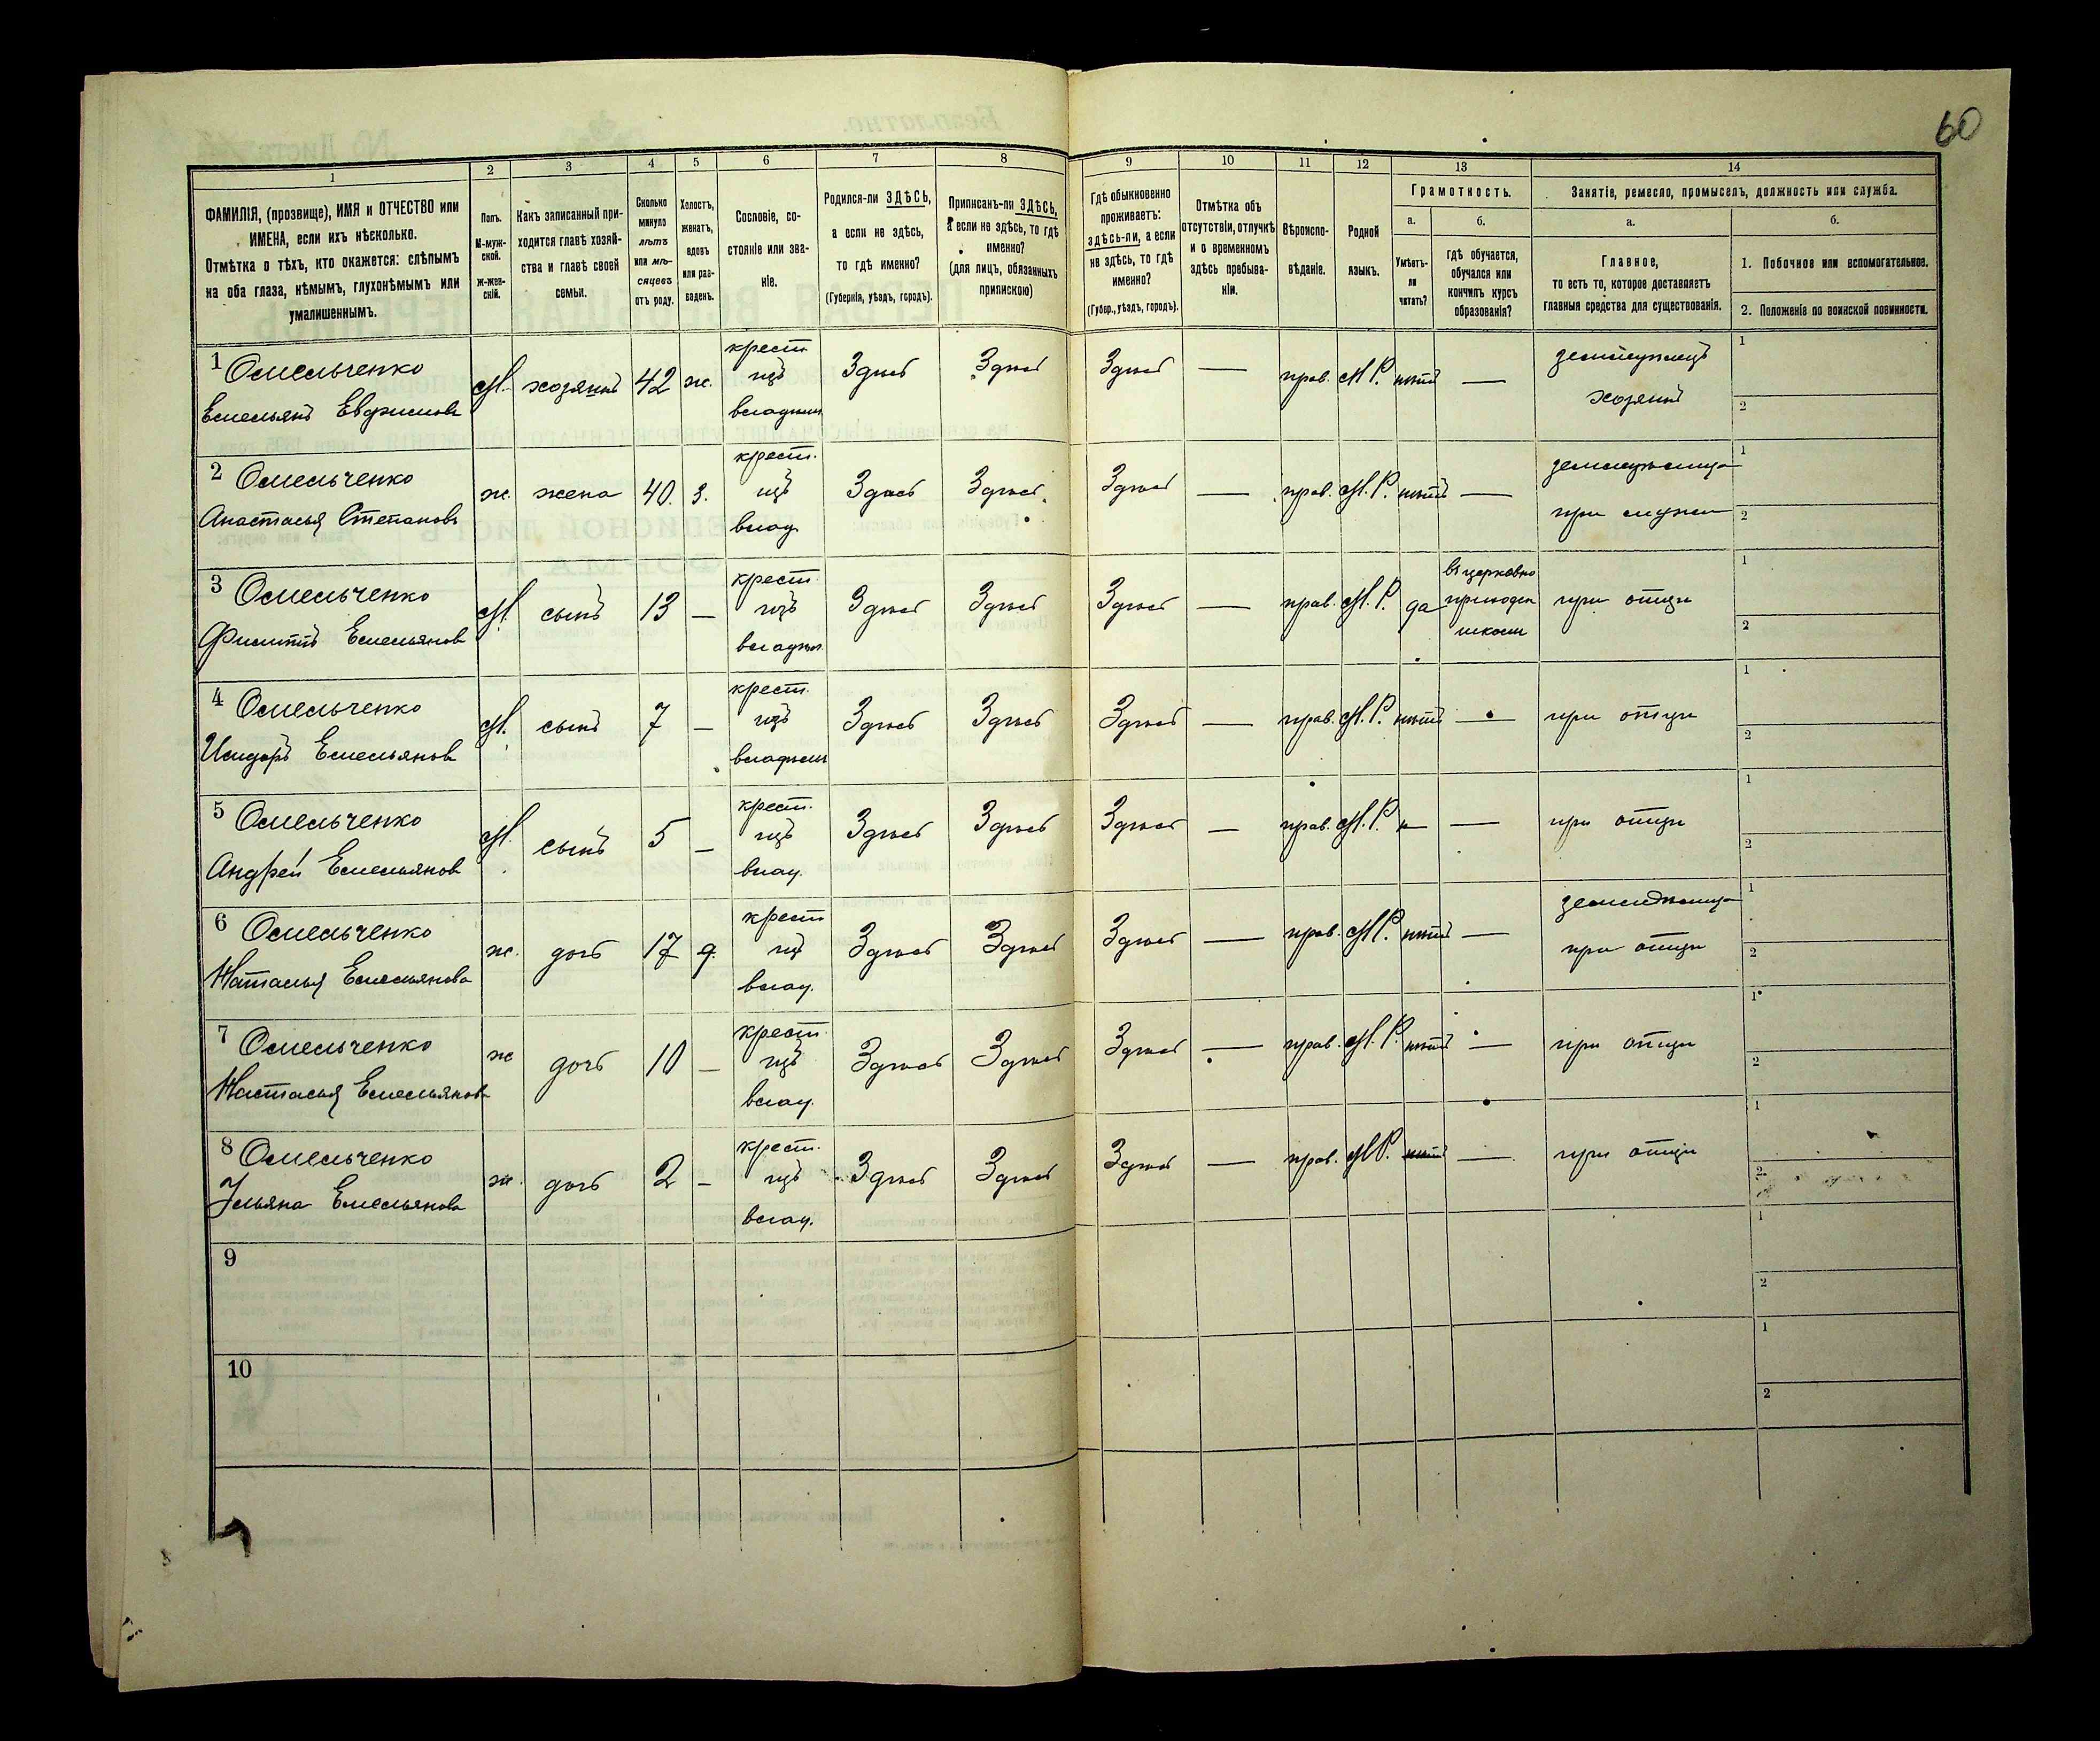 60
1
2
3
4
5
6
7
8
9
10
11
12
13
14
ФАМИЛІЯ, (прозвище), ИМЯ и ОТЧЕСТВО или
ИМЕНА, если ихъ нѣсколько.
Отмѣтка о тѣхъ, кто окажется: слѣпымъ
на оба глаза, нѣмымъ, глухонѣмымъ или
умалишеннымъ.
Полъ.
М-муж-
ской.
ж-жен-
скій.
Какъ записанный при-
ходится главѣ хозяй-
ства и главѣ своей
семьи.
Сколько
минуло
лѣтъ
или мѣ-
сяцевъ
отъ роду.
Холостъ,
женатъ,
вдовъ
или раз-
веденъ.
Сословіе, со-
стояніе или зва-
ніе.
Родился-ли ЗДѢСЬ,
а если не здѣсь,
то гдѣ именно?
(Губернія, уѣздъ, городъ).
Приписанъ-ли ЗДѢСЬ,
а если не здѣсь, то гдѣ
именно?
(для лицъ, обязанныхъ
припискою)
Гдѣ обыкновенно
проживаетъ:
здѣсь-ли, а если
не здѣсь, то гдѣ
именно?
(Губер., уѣздъ, городъ).
Отмѣтка объ
отсутствіи, отлучкѣ
и о временномъ
здѣсь пребыва-
ніи.
Вѣроиспо-
вѣданіе.
Родной
языкъ.
Грамотность.
а.
Умѣетъ-
ли
читать?
б.
гдѣ обучается,
обучался или
кончилъ курсъ
образованія?
Занятіе, ремесло, промыселъ, должность или служба.
а.
Главное,
то есть то, которое доставляетъ
главныя средства для существованія.
б.
1. Побочное или вспомогательное.
2. Положеніе по воинской повинности.
1 Омельченко
Емельянъ
М. хозяинъ 42 ж.
крест.
Здѣсь Здѣсь Здѣсь — прав. М.Р. нѣтъ —
хозяинъ
1
2
2 Омельченко
Анастасья Степанова
ж. жена 40. з.
крест.
влад.
Здѣсь Здѣсь Здѣсь — прав. М.Р. нѣтъ —
при
1
2
3 Омельченко
Филиппъ Емельянов
М. сынъ 13 —
крест.
Здѣсь Здѣсь Здѣсь — прав. М.Р. да
въ церковно
приходск
школи
при отци
1
2
4 Омельченко
Исидоръ Емельянов
М. сынъ 7 —
крест.
Здѣсь Здѣсь Здѣсь — прав. М.Р. нѣтъ — при отци
1
2
5 Омельченко
Андрей Емельянов
М. сынъ 5 —
крест.
влад.
Здѣсь Здѣсь Здѣсь — прав. М.Р. н — при отци
1
2
6 Омельченко
Наталья Емельянова
ж. дочь 17 д.
крест
влад.
Здѣсь Здѣсь Здѣсь — прав. М.Р. нѣтъ —
при отци
1
2
7 Омельченко
Настасья Емельянова
ж дочь 10 —
крест.
влад.
Здѣсь Здѣсь Здѣсь — прав. М.Р. нѣтъ — при отци
1
2
8 Омельченко
Ульяна Емельянова
ж. дочь 2 —
крест.
влад.
Здѣсь Здѣсь Здѣсь — прав. М.Р. нѣтъ — при отци
1
2
9
1
2
10
1
2